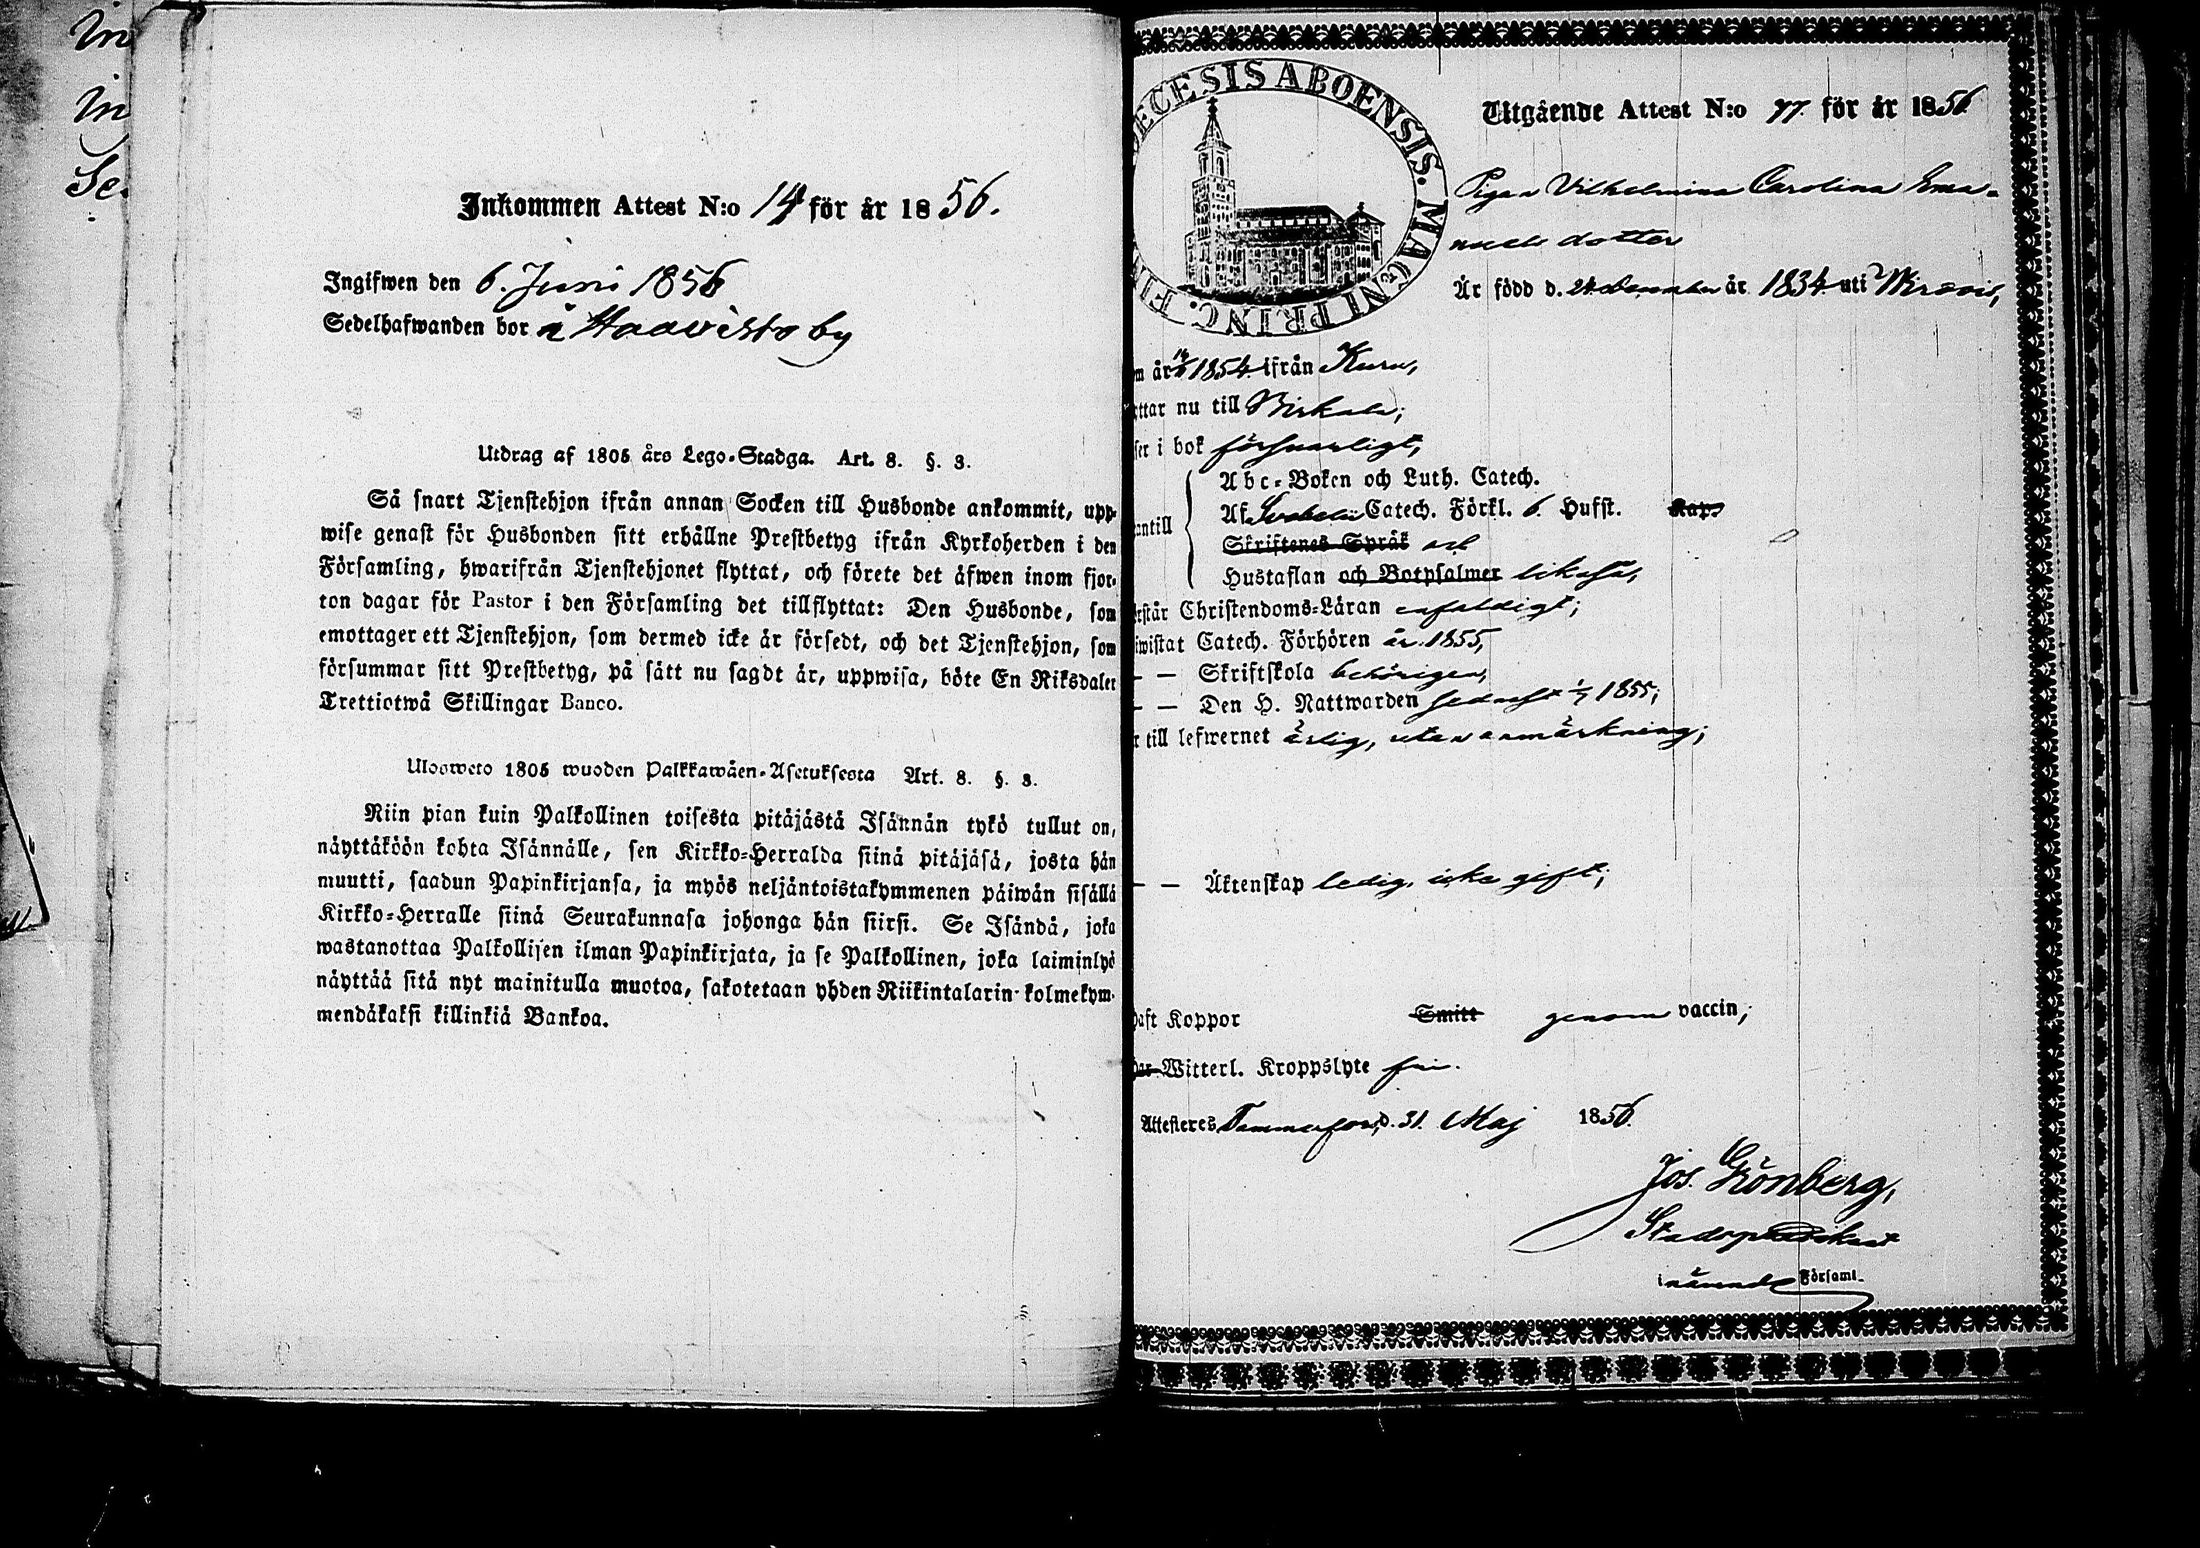 In
in
Se
Inkommen Attest N:o 14 för år 1856.
Ingifwen den 6. Juni 1856
Sedelhafwanden bor i Haavisto by
Utdrag af 1805 års Lego-Stadga. Art. 8. §. 3.
Så snart Tjenstehjon ifrån annan Socken till Husbonde ankommit, upp-
wise genast för Husbonden sitt erhållne Prestbetyg ifrån Kyrkoherden i den
Församling, hwarifrån Tjenstehjonet flyttat, och förete det äfwen inom fjor-
ton dagar för Pastor i den Församling det tillflyttat: Den Husbonde, som
emottager ett Tjenstehjon, som dermed icke är försedt, och det Tjenstehjon, som
försummar sitt Prestbetyg, på sätt nu sagdt är, uppwisa, böte En Riksdaler
Trettiotwå Skillingar Banco.
Ulosweto 1805 wuoden Palkkawäen-Asetuksesta Art. 8. §. 3.
Niin pian kuin Palkollinen toisesta pitäjästä Isännän tykö tullut on,
näyttäköön kohta Isännälle, sen Kirkko-Herralda siinä pitäjäsä, josta hän
muutti, saadun Papinkirjansa, ja myös neljäntoistakymmenen päiwän sisällä
Kirkko-Herralle siinä Seurakunnasa johonga hän siirsi. Se Isändä, joka
wastanottaa Palkollisen ilman Papinkirjata, ja se Palkollinen, joka laiminlyö
näyttää sitä nyt mainitulla muotoa, sakotetaan yhden Riikintalarin kolmekym-
mendäkaksi killinkiä Bankoa.
ECESIS ABOENSIS. MAGNI PRINC. FI
Utgående Attest N:o 77. för år 1856
Pigan Vilhelmina Carolina Ema-
nuels dotter
Är född d. 24 December år 1834 uti
m år 1854 ifrån Kuru,
ttar nu till Birkala;
ser i bok försvarligt,
Abc-Boken och Luth. Catech.
Af Svebelii Catech. Förkl. 6. Hufst. Kap.
antill
Skriftenes Språk och
Hustaflan och Botpsalmer likaså,
rstår Christendoms-Läran enfaldigt;
iwistat Catech. Förhören år 1855,
— — Skriftskola behörigen,
— — Den H. Nattwarden sednast 1/7 1855;
r till lefwernet ärlig, utan anmärkning;
— — Äktenskap ledig, icke gift;
haft Koppor Smitt genom vaccin;
har Witterl. Kroppslyte fri.
Attesteres Tammerfors, d. 31. Maj 1856.
Jos. Grönberg,
Stadspredikant
i nämnde Församl.